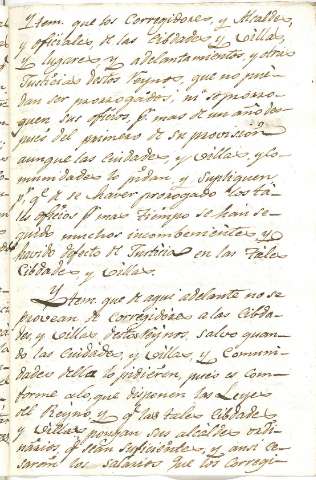 Ytem. que los Corregidores, y Alcaldes,
y oficiales, de las Cibdades y Villas,
y lugares y adelantamientos, y otras
Justicias destos Reynos, que no pue-
dan ser prorrogados, ni se prorro-
guen sus oficios, pº mas de un año des-
pues del primero de su provision
aunque las Ciudades, y Villas, y Co-
munidades lo pidan y supliquen
pr qe de se haver prorogado los ta-
les oficios pr mas tiempo se han se-
guido muchos incombenientes y
havido defecto de Justicia en las tales
Cibdades y Villas.
Ytem. que de aqui adelante no se
provean de Corregidores a las Cibda-
des, y Villas destos Reynos, salvo quan-
do las Ciudades, y Villas, y Comuni-
dades della lo pidieren, pues es com-
forme a lo que disponen las Leyes
del Reyno, y qe las tales Cibdades
y Villas pongan sus alcaldes ordi-
narios, qe sean suficientes, y ansi ce-
saran los salarios que los Corregi-